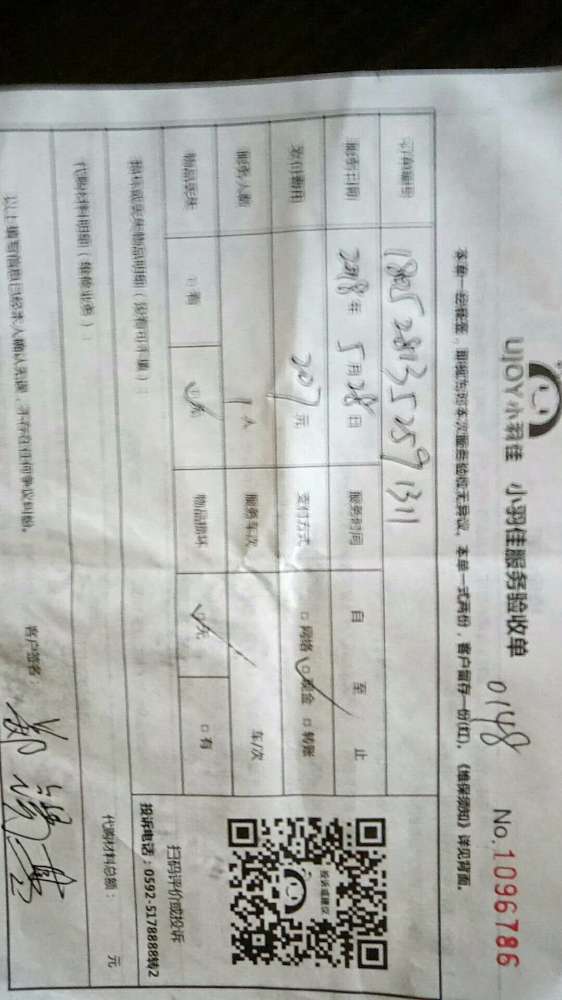 UJOY小羽佳 小羽佳服务验收单
0148 No.1096786
本单一经核签,即视为对本次服务验收无异议。本单一式两份,客户留存一份(红)。《维保须知》详见背面。
订单编号 1805281352591311
服务日期 2018年 5月28日 服务时间 自 至 止
发包费用 207元 支付方式 □网络 ☑现金 □转账
服务人数 1人 服务车次 车/次
物品丢失 □有 ☑无 物品损坏 ☑无 □有
损坏或丢失物品明细(没有可不填):
代购材料明细(维修业务): 代购材料总额: 元
以上填写信息已经本人确认无误,不存在任何争议纠纷。
客户签名:
投诉或建议
扫码评价或投诉
投诉电话:0592-5178888转2